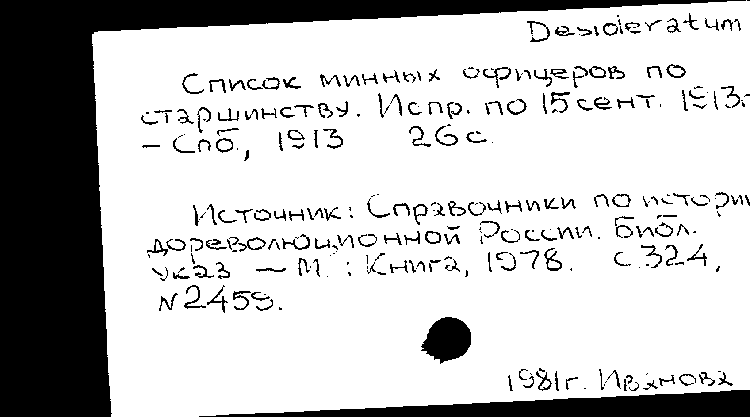 Desideratum
Список минных офицеров по
старшинству. Испр. по 15 сент. 1913г.
– Спб., 1913 26 с.
Источник: Справочники по истории
дореволюционной России. Библ.
указ – М.: Книга, 1978. с.324,
N2459.
1981г. Иванова